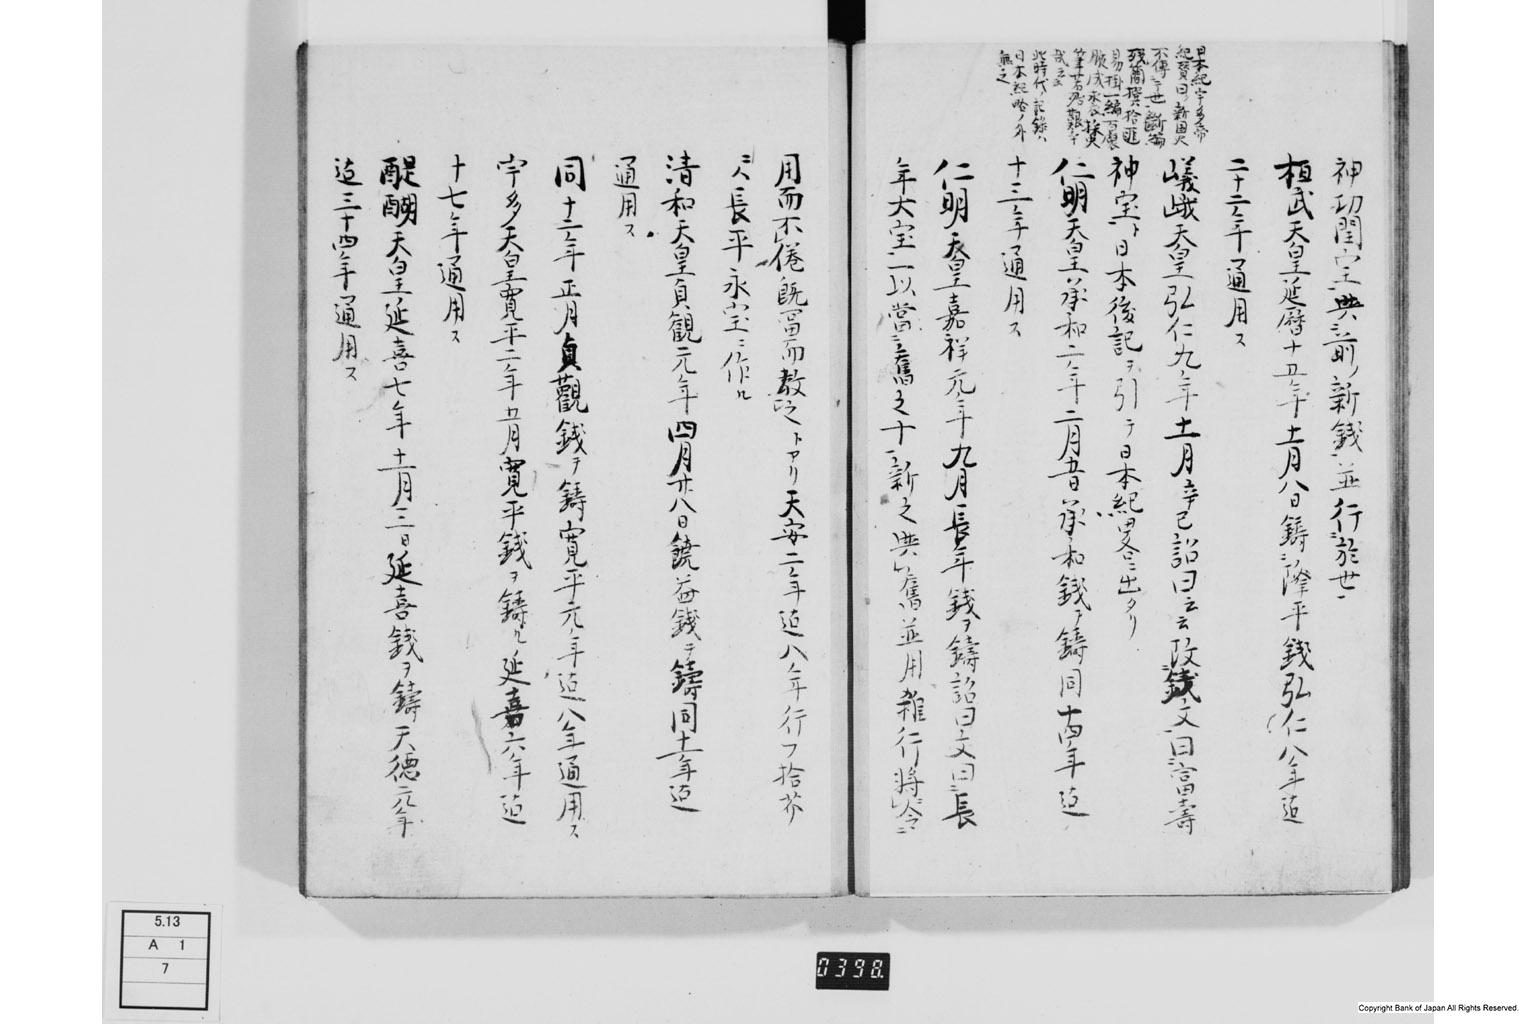 神功開宝與前新銭並行於世
桓武天皇延暦十五年十一月八日鋳隆平銭弘仁八年迄
二十二年通用ス
嵯峨天皇弘仁九年十一月辛巳詔曰云云改銭文曰富壽
神宝ト日本後記ヲ引テ日本紀畧ニ出タリ
仁明天皇承和二年二月五日承和銭ヲ鋳同十四年迄
十三年通用ス
仁明天皇嘉祥元年九月長年銭ヲ鋳詔曰文曰長
年大宝一以當舊之十新之與舊並用雜行將令
日本紀宇多帝
紀賛曰新国史
不傳于世断編
残簡撰拾
易掛一編
此時代ノ記録ハ
日本紀略ノ外
無之
用而不倦既富而教之トアリ天安二年迄八年行フ拾芥
ニハ長平永宝ニ作ル
清和天皇貞観元年四月廿八日饒益銭ヲ鋳同十一年迄
通用ス
同十二年正月貞觀銭ヲ鋳寛平元年迄八年通用ス
宇多天皇寛平二年五月寛平銭ヲ鋳ル延喜六年迄
十七年通用ス
醍醐天皇延喜七年十一月三日延喜銭ヲ鋳天徳元年
迄三十四年通用ス
5.13
A 1
7
0398
Copyright Bank of Japan All Rights Reserved.